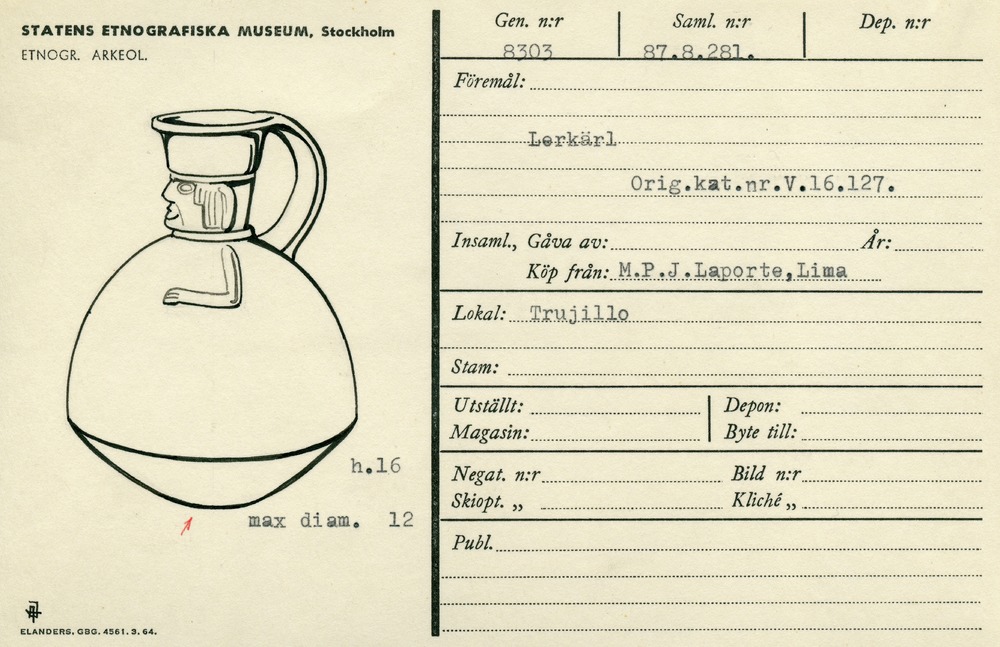 STATENS ETNOGRAFISKA MUSEUM, Stockholm
ETNOGR. ARKEOL.
h.16
max diam. 12
ELANDERS, GBG. 4561. 3. 64.
Gen. n:r Saml. n:r Dep. n:r
8303 87.8.281.
Föremål:
Lerkärl
Orig.kat.nr.V.16.127.
Insaml., Gåva av: År:
Köp från: M.P.J.Laporte,Lima
Lokal: Trujillo
Stam:
Utställt: Depon:
Magasin: Byte till:
Negat. n:r Bild n:r
Skiopt. „ Kliché „
Publ.